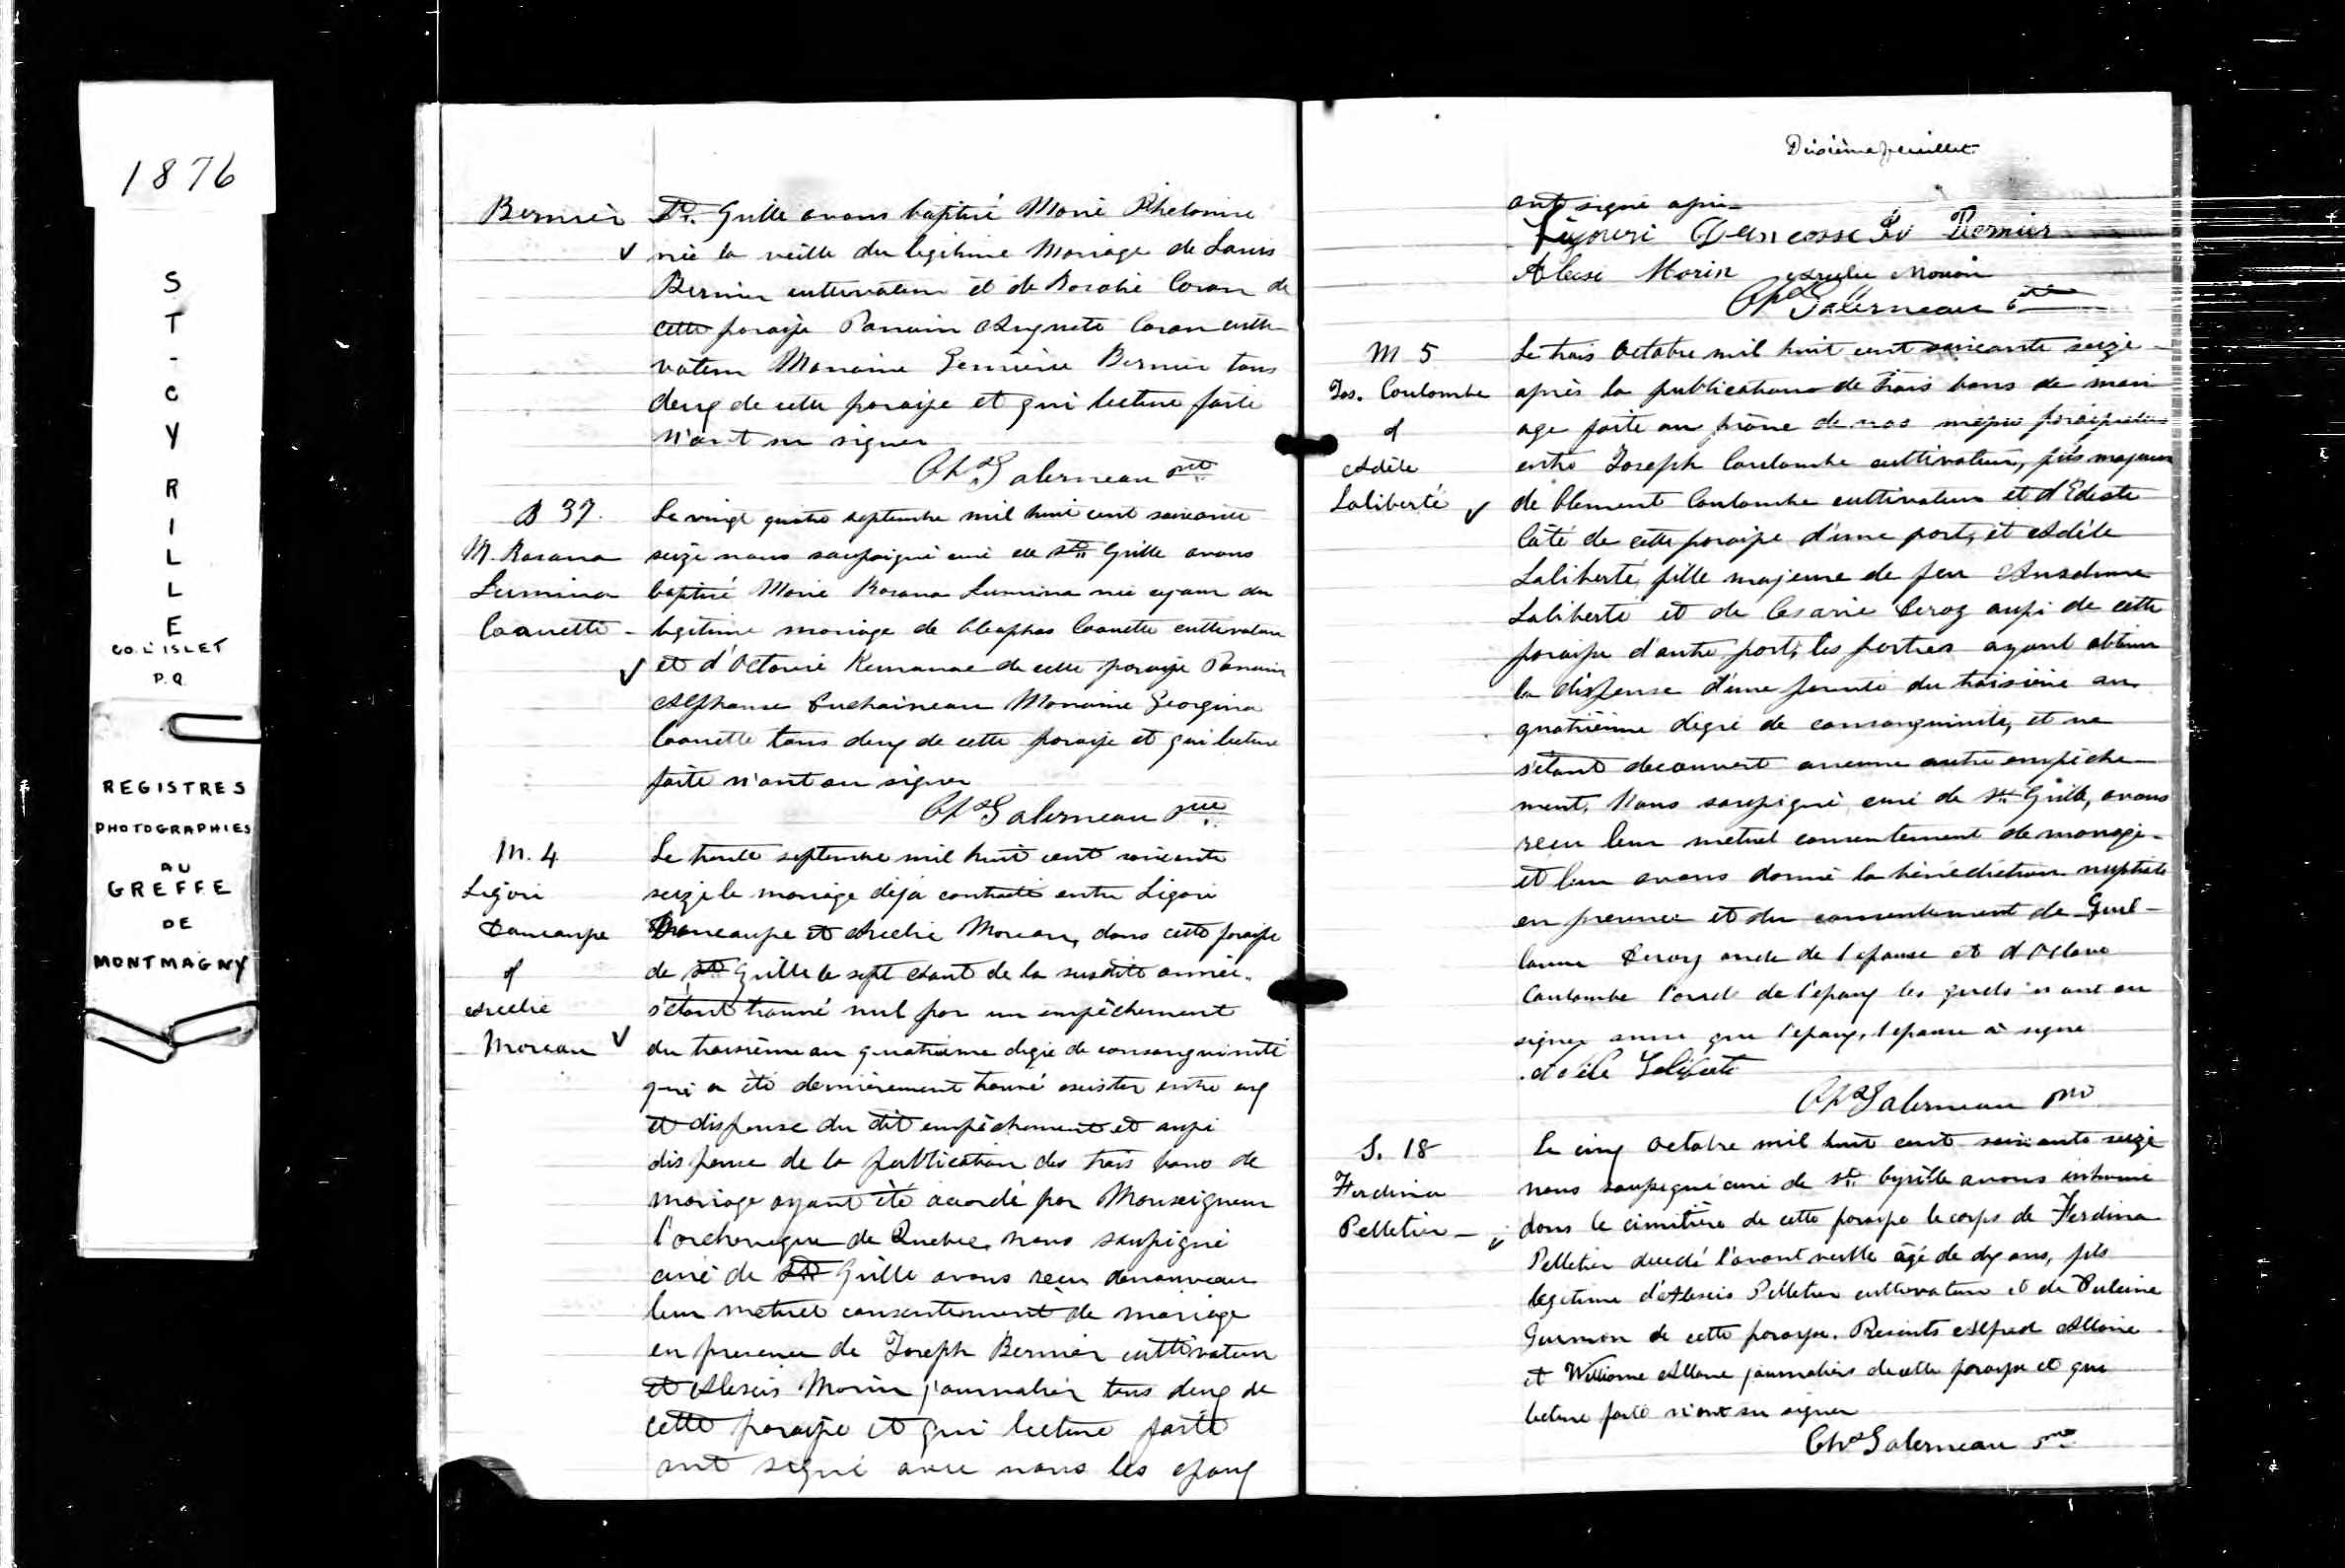 1876
ST-CYRILLE
CO. L'ISLET
P.Q.
REGISTRES
PHOTOGRAPHIES
AU
GREFFE
DE
MONTMAGNY
Bernier
St. Cyrille avons baptisé Marie Philomine
née la veille du légitime Mariage de Louis
Bernier cultivateur et de Rosalie Caron de
cette paroisse Parrain Auguste Caron culti
vateur Marraine Bernier tous
deux de cette paroisse et qui lecture faite
n'ont su signer
Chs Galerneau Ptre
B 37.
M. Rosana
Lumina
Caouette -
Le vingt quatre septembre mil huit cent soixante
seize nous soussigné curé de St. Cyrille avons
baptisé Marie Rosana Lumina née ajour du
légitime mariage de Cléophas Caouette cultivateur
et d'Octavie de cette paroisse Parrain
Alphonse Duchaineau Marraine Georgina
Caouette tous deux de cette paroisse et qui lecture
faite n'ont su signer
Chs Galerneau Ptre
M. 4
Ligori
Dancausse
&
Arélie
Moreau
Le trente septembre mil huit cent soixante
seize le mariage déjà contracté entre Ligori
Dancausse et Arélie Moreau, dans cette paroisse
de St. Cyrille le sept Août de la susdite année,
s'étant trouvé nul par un empêchement
du troisième au quatrième degré de consanguinité
qui a été dernièrement trouvé exister entre eux
et dispense du dit empêchement et aussi
dispense de la publication des trois bans de
mariage ayant été acordé par Monseigneur
l'archevêque de Québec, nous soussigné
curé de St. Cyrille avons reçu denouveau
leur mutuel consentement de mariage
en présence de Joseph Bernier cultivateur
et Alexis Morin journalier tous deux de
cette paroisse et qui lecture faite
ont signé avec nous les epoux
Dixième feuillet
ont signé
Ligouri Dancosse Bernier
Alexi Morin Moreau
Chs Galerneau Ptre
M 5
Jos. Coulombe
&
Adèle
Laliberté
Le trois Octobre mil huit cent soixante seize
après la publications de trois bans de mari
age faite au prône de nos messes paroissiales
entre Joseph Coulombe cultivateur, fils majeur
de Clement Coulombe cultivateur et d'Edeste
Côté de cette paroisse d'une part, et Adèle
Laliberté, fille majeure de feu Anselme
Laliberté et de Cesarie Leroy aussi de cette
paroisse d'autre part, les parties ayant obtenu
la dispense d'une parenté du troisième au
quatrième degré de consanguinité, et ne
s'étant découvert aucune autre empêche
ment, Nous soussigné curé de St. Cyrille, avons
reçu leur mutuel consentement de mariage
et leur avons donné la bénédiction nuptiale
en présence et du consentement de Guil-
laume Leroy oncle de l'épouse et d'Octave
Coulombe de l'époux les quels n'ont su
signer que l'époux, l'épouse a signé
Adèle Laliberte
Chs Galerneau Ptre
S. 18
Ferdina
Pelletier -
Le cinq Octobre mil huit cent soixante seize
nous soussigné curé de St. Cyrille avons inhumé
dans le cimitière de cette paroisse le corps de Ferdina
Pelletier décedé l'avant veille âgé de dix ans, fils
légitime d'Alexis Pelletier cultivateur et de
de cette paroisse. Présents Alfred Allaire
et Williame Allaire journaliers de cette paroisse et qui
lecture faite n'ont su signer
Chs Galerneau Ptre